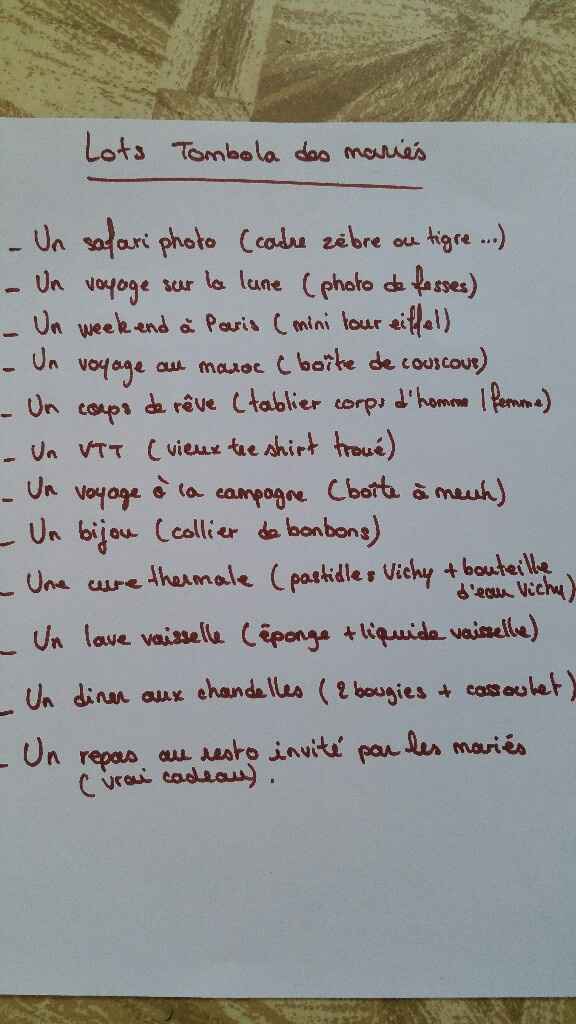 Lots Tombola des mariés
- Un safari photo (cadre zèbre ou tigre ...)
- Un voyage sur la lune (photo de fesses)
- Un week end à Paris (mini tour eiffel)
- Un voyage au maroc (boîte de couscous)
- Un corps de rêve (tablier corps d'homme / femme)
- Un VTT (vieux tee shirt troué)
- Un voyage à la campagne (boîte à meuh)
- Un bijou (collier de bonbons)
- Une cure thermale (pastidles Vichy + bouteille
d'eau Vichy)
- Un lave vaisselle (éponge + liquide vaisselle)
- Un diner aux chandelles (2 bougies + cassoulet)
- Un repas au resto invité par les mariés
(vrai cadeau).